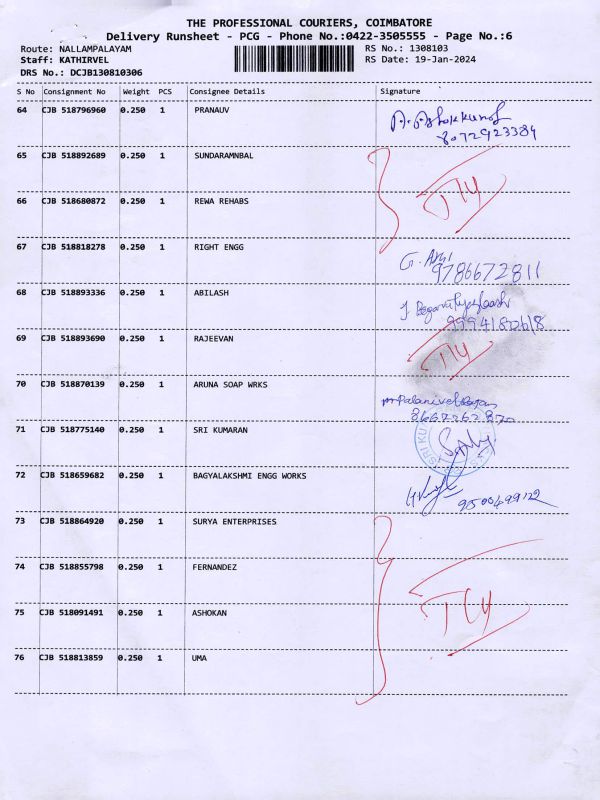 THE PROFESSIONAL COURIERS, COIMBATORE
Delivery Runsheet - PCG - Phone No.:0422-3505555 - Page No.:6
Route: NALLAMPALAYAM RS No.: 1308103
Staff: KATHIRVEL RS Date: 19-Jan-2024
DRS No.: DCJB130810306
S No Consignment No Weight PCS Consignee Details Signature
64 CJB 518796960 0.250 1 PRANAUV
A. Ashokkumar
8072923384
65 CJB 518892689 0.250 1 SUNDARAMNBAL
66 CJB 518680872 0.250 1 REWA REHABS
TLY
67 CJB 518818278 0.250 1 RIGHT ENGG
9786672811
68 CJB 518893336 0.250 1 ABILASH
69 CJB 518893690 0.250 1 RAJEEVAN
TLY
70 CJB 518870139 0.250 1 ARUNA SOAP WRKS
71 CJB 518775140 0.250 1 SRI KUMARAN
72 CJB 518659682 0.250 1 BAGYALAKSHMI ENGG WORKS
73 CJB 518864920 0.250 1 SURYA ENTERPRISES
74 CJB 518855798 0.250 1 FERNANDEZ
75 CJB 518091491 0.250 1 ASHOKAN
TLY
76 CJB 518813859 0.250 1 UMA